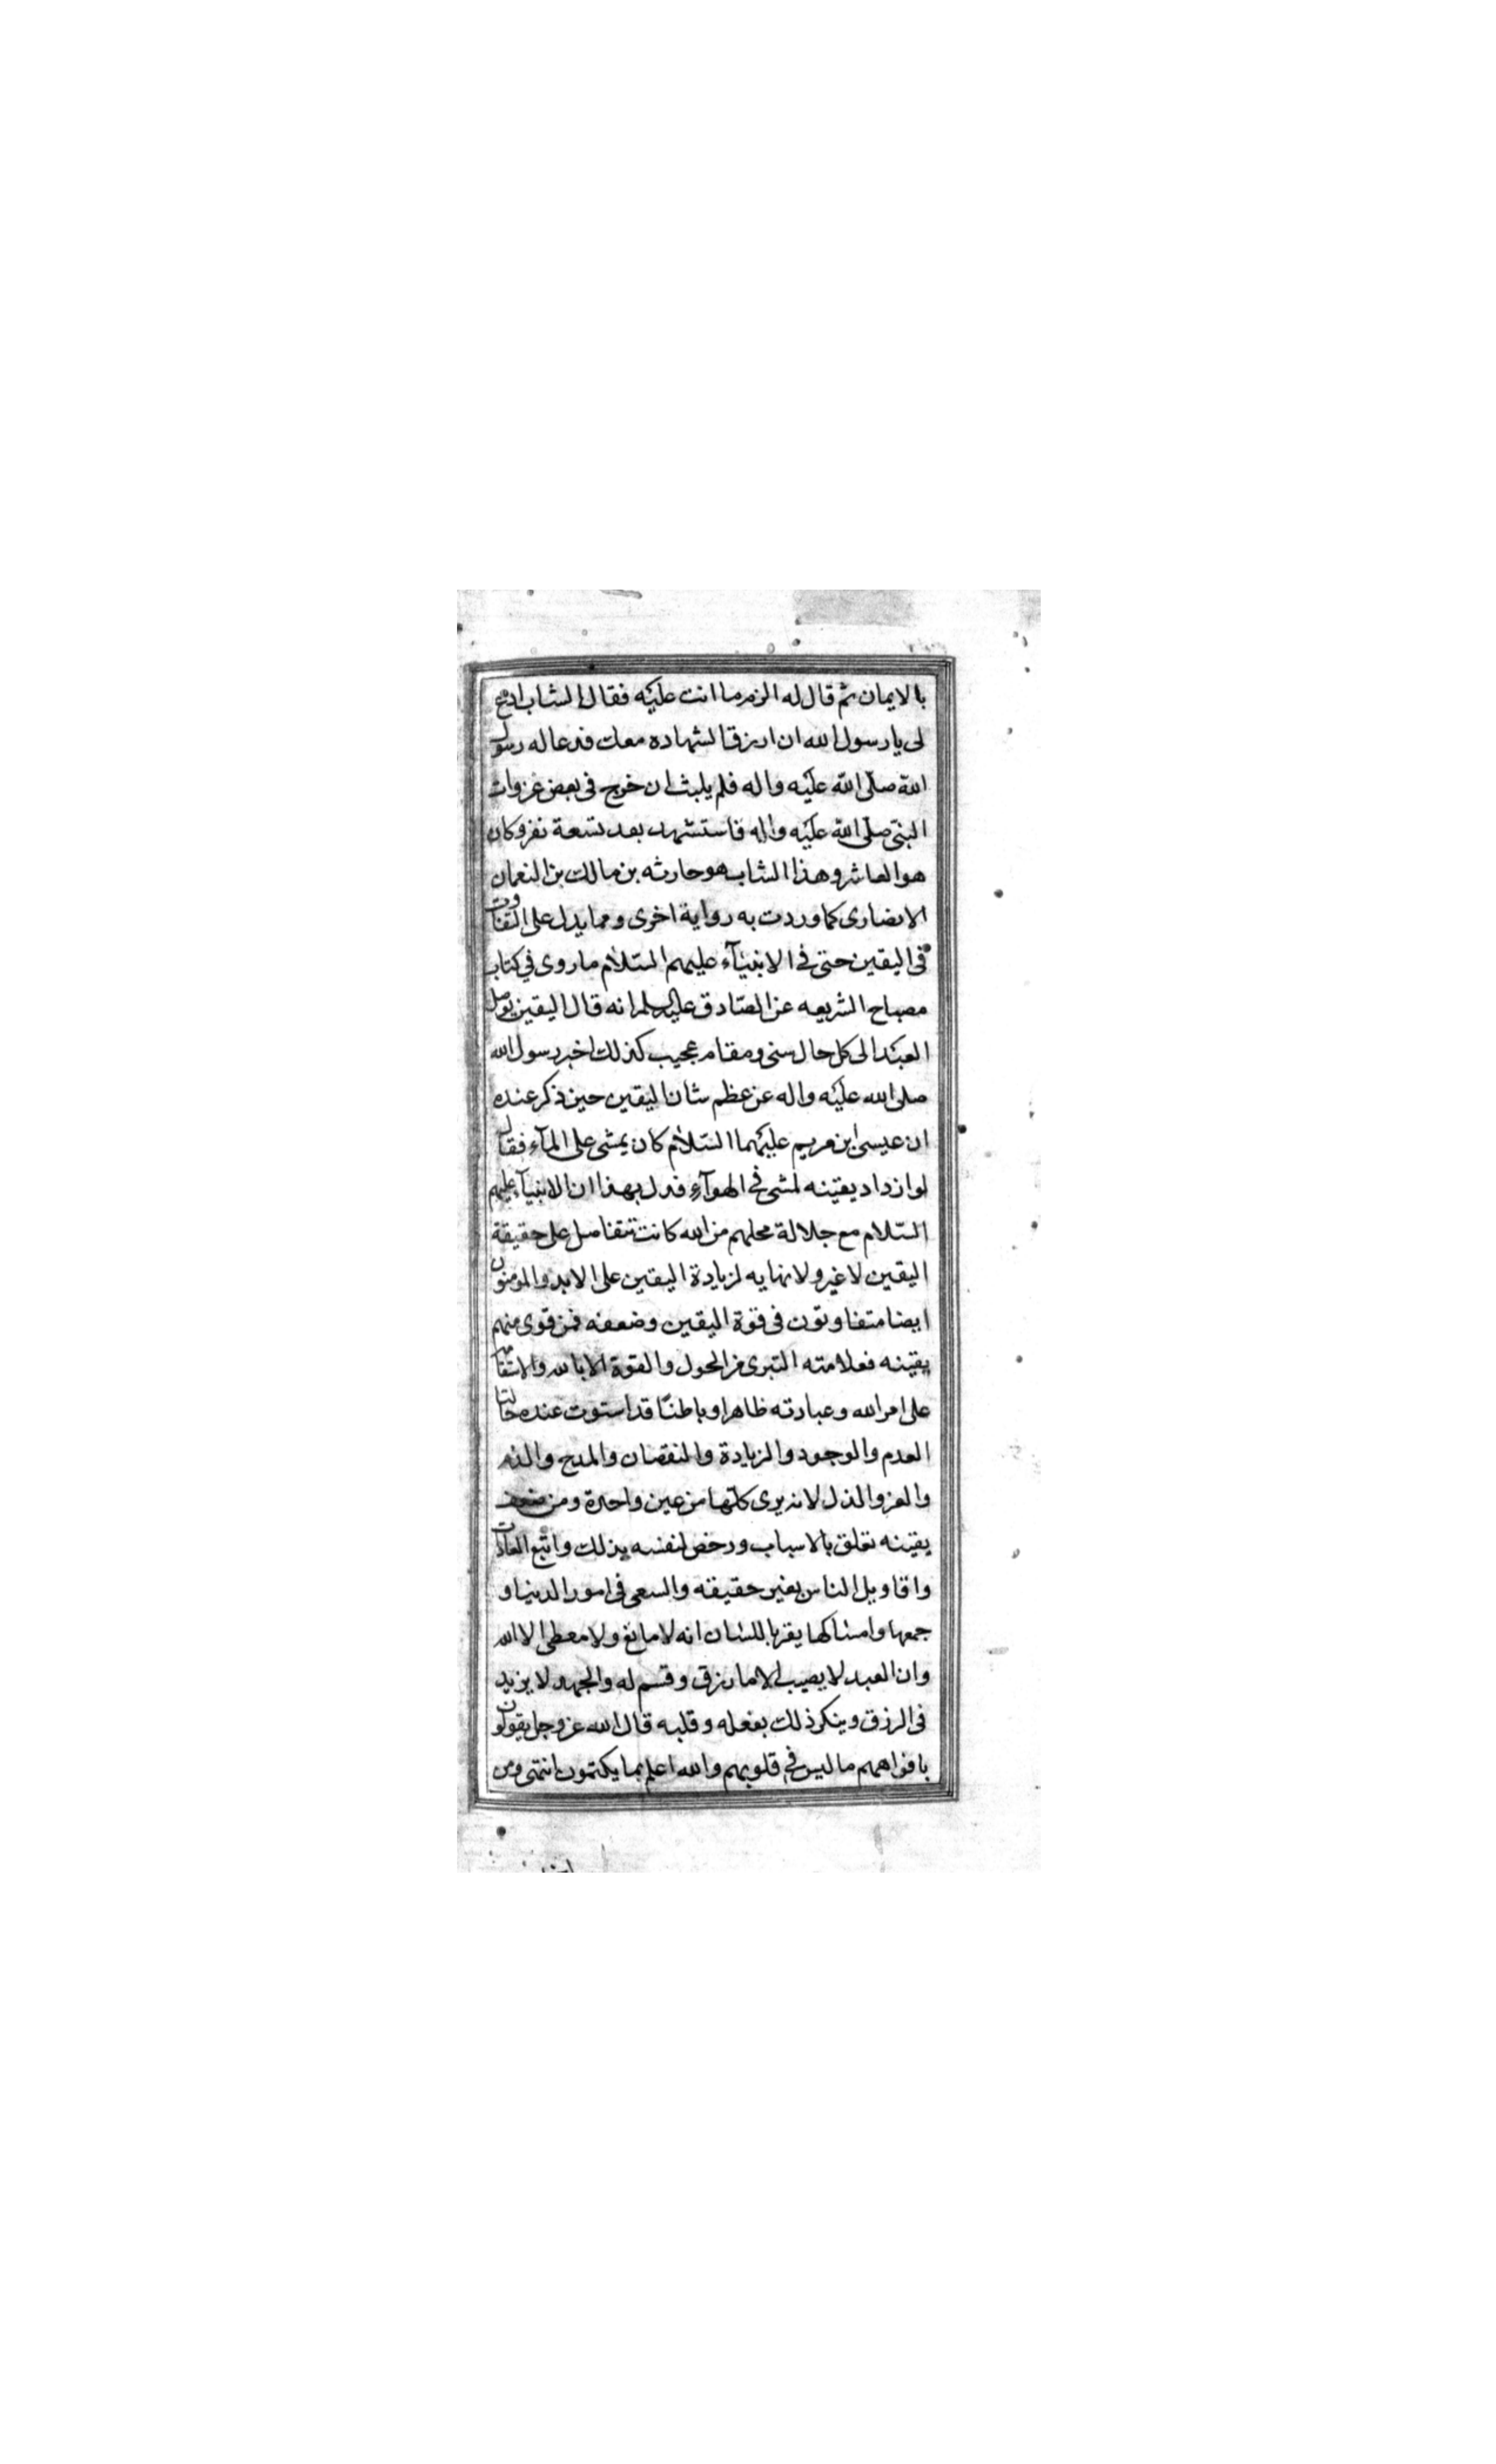 بالايمان ثم قال له الزم ما انت عليه فقال الشاب ادع
لى يا رسول الله ان ارزق الشهاده معك فدعا له رسول
الله صلى الله عليه واله فلم يلبث ان خرج فى بعض غزوات
النبى صلى الله عليه واله فاستشهد بعد تسعة نفر وكان
هو العاشر وهذا الشاب هو حارثه بن مالك بن النعمان
الانصارى كما وردت به رواية اخرى ومما يدل على التفاوت
فى اليقين حتى فى الانبيآء عليهم السلام ما روى فى كتاب
مصباح الشريعه عن الصادق عليه السلم انه قال اليقين يوصل
العبد الى كل حال سنى ومقام عجيب كذلك اخبر رسول الله
صلى الله عليه واله عن عظم شان اليقين حين ذكر عنده
ان عيسى ابن مريم عليهما السلام كان يمشى على المآء فقال
لو ازداد يقينه لمشى فى الهوآء فدل بهذا ان الانبيآء عليهم
السلام مع جلالة محلهم من الله كانت تتفاضل على حقيقة
اليقين لا غير ولا نهايه لزيادة اليقين على الابد والمومنون
ايضا متفاوتون فى قوة اليقين وضعفه فمن قوى منهم
يقينه فعلامته التبرى من الحول والقوة الا بالله والاستقامة
على امر الله وعبادته ظاهرا وباطنا قد استوت عنده حالتا
العدم والوجود والزيادة والنقصان والمدح والذم
والعز والذل لانه يرى كلها من عين واحدة ومن ضعف
يقينه تعلق بالاسباب ورخص لنفسه بذلك واتبع العادات
واقاويل الناس بغير حقيقه والسعى فى امور الدنيا و
جمعها وامساكها يقر باللسان انه لا مانع ولا معطى الا الله
وان العبد لا يصيب الا ما رزق وقسم له والجهد لا يزيد
فى الرزق وينكر ذلك بفعله وقلبه قال الله عز وجل يقولون
بافواههم ما ليس فى قلوبهم والله اعلم بما يكتمون انتهى ومن